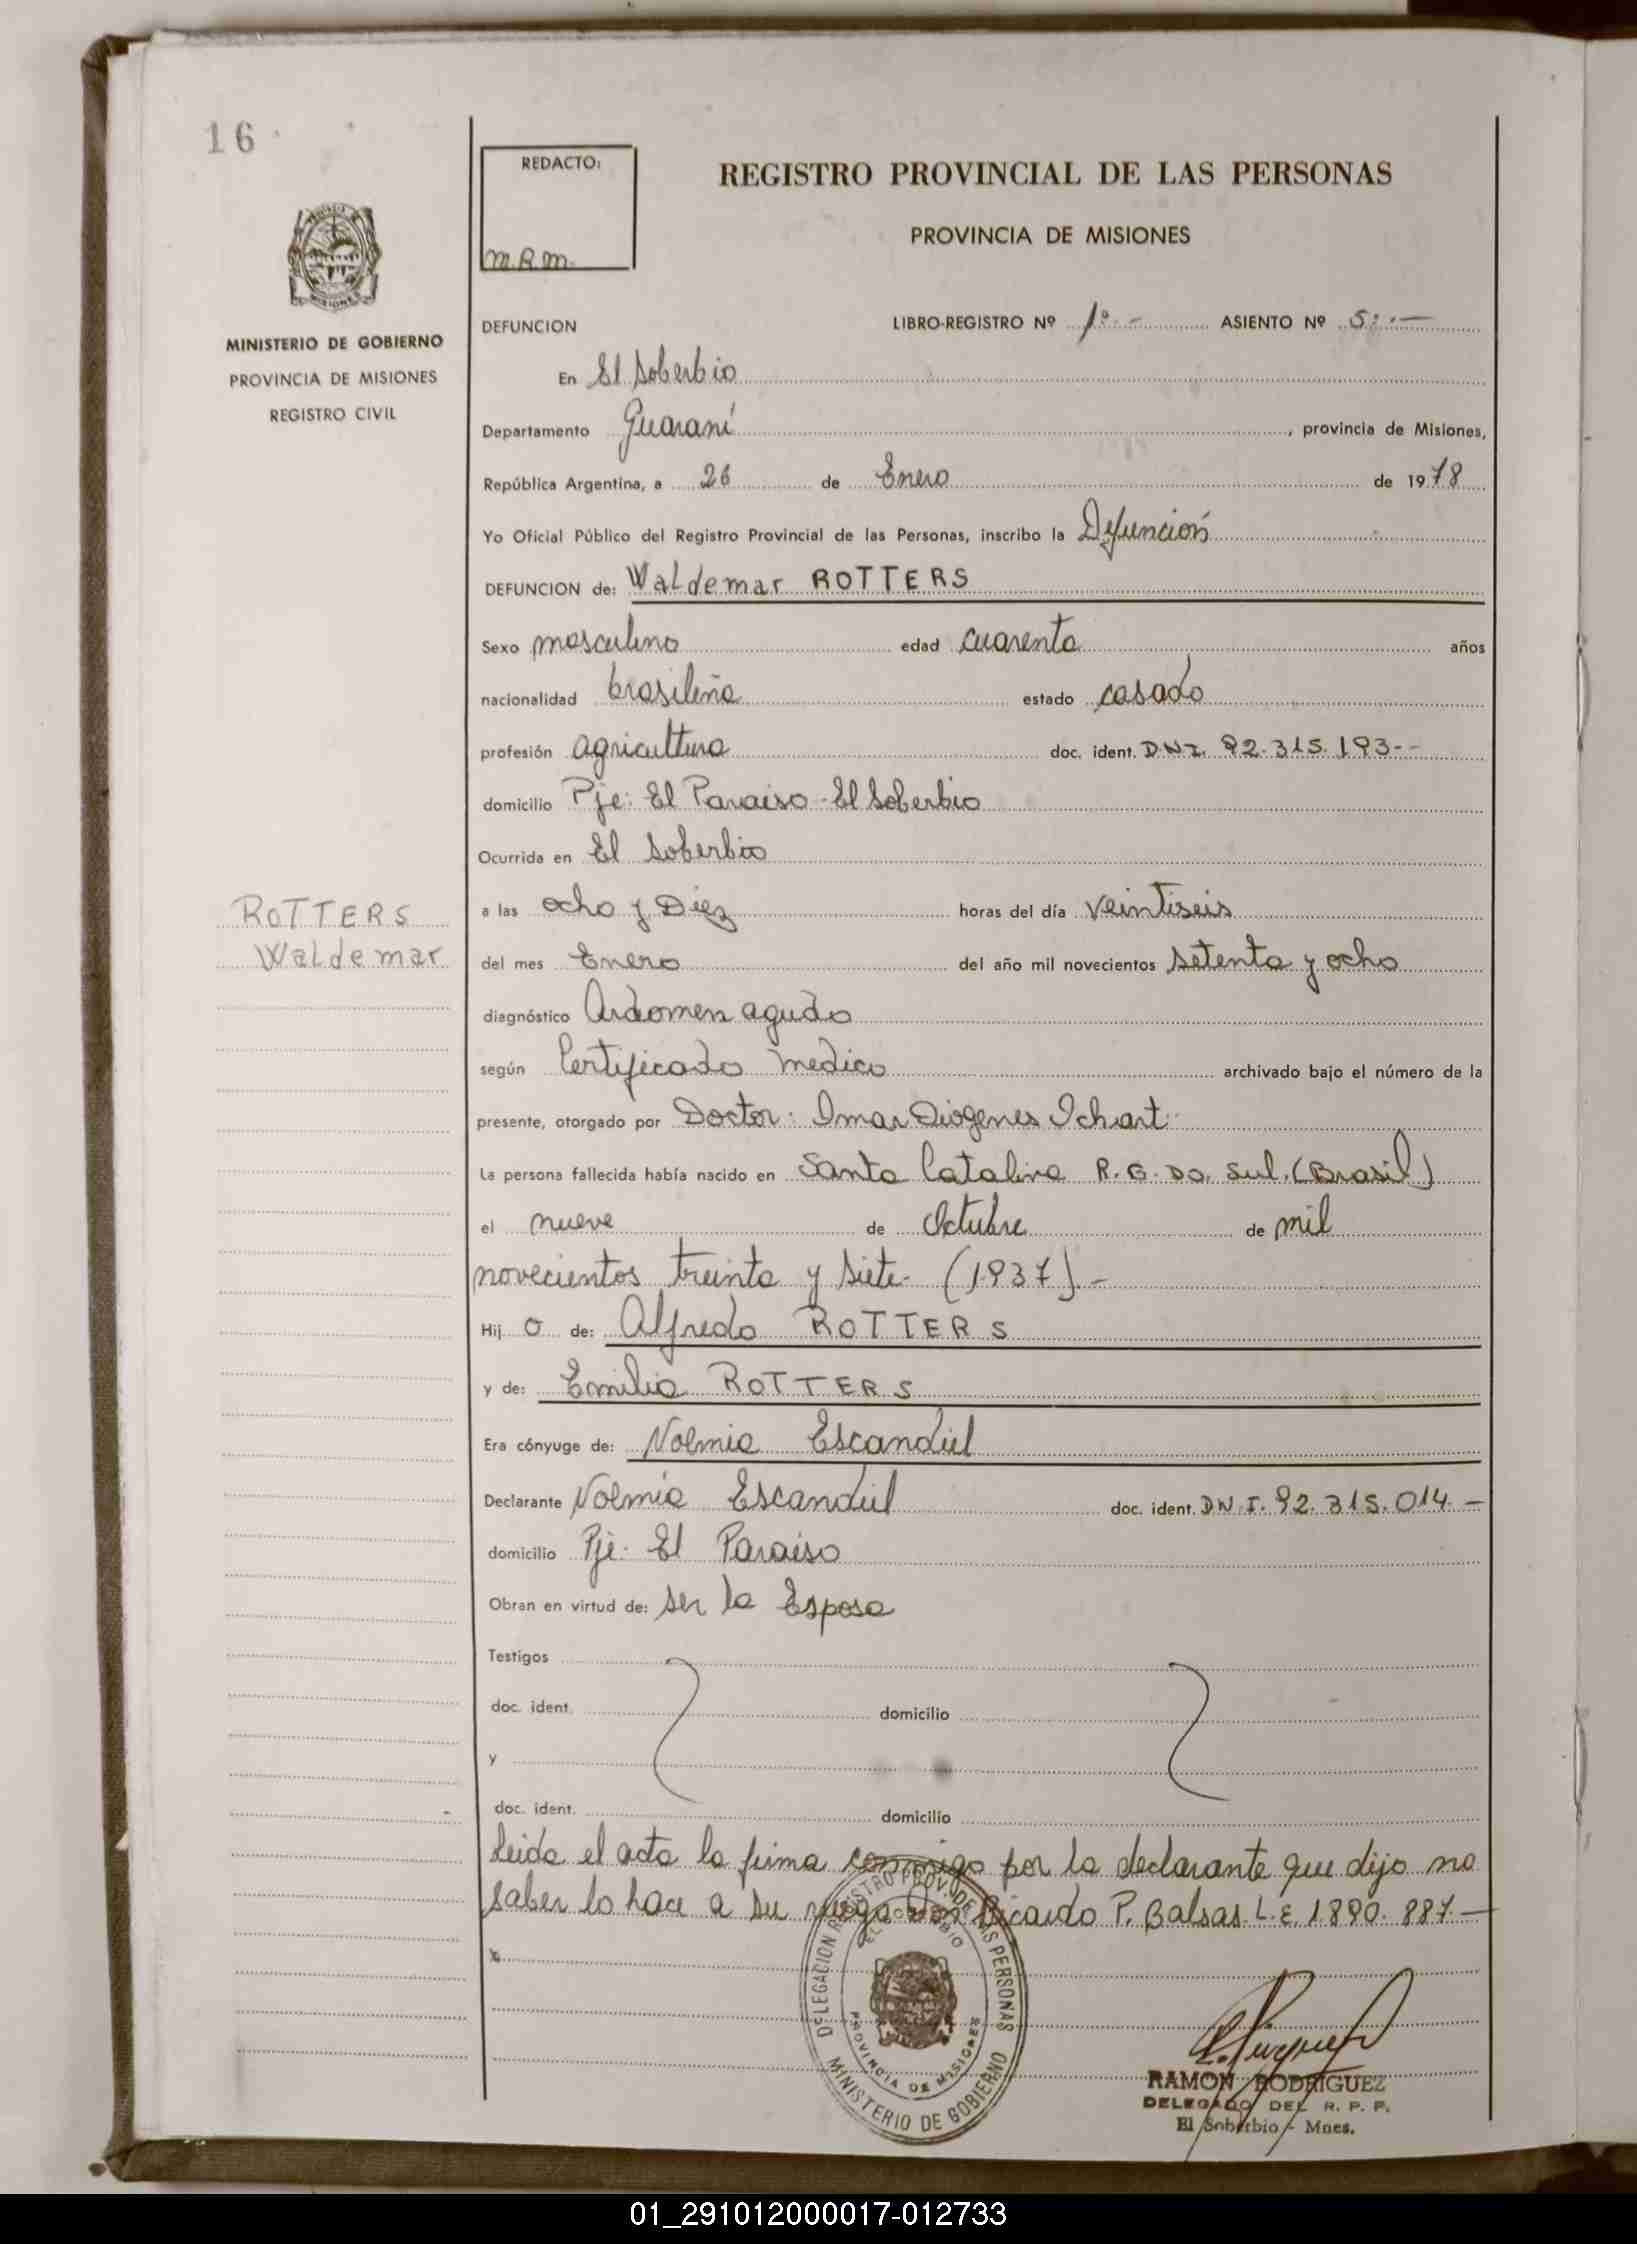 16
REDACTO:
m.R.m.
REGISTRO PROVINCIAL DE LAS PERSONAS
PROVINCIA DE MISIONES
MISIONES
MINISTERIO DE GOBIERNO
PROVINCIA DE MISIONES
REGISTRO CIVIL
DEFUNCION LIBRO-REGISTRO Nº 1º.- ASIENTO Nº 5:.-
En El Soberbio
Departamento Guaraní, provincia de Misiones,
República Argentina, a 26 de Enero de 1978
Yo Oficial Público del Registro Provincial de las Personas, inscribo la Defunción
DEFUNCION de: Waldemar ROTTERS
Sexo masculino edad cuarenta años
nacionalidad brasileña estado casado
profesión agricultura doc. ident. D.N.I. 92.315.193--
domicilio Pje: El Paraiso-El Soberbio
Ocurrida en El Soberbio
ROTTERS
Waldemar
a las ocho y Diez horas del día Veintiseis
del mes Enero del año mil novecientos setenta y ocho
diagnóstico Abdomen agudo
según Certificado medico archivado bajo el número de la
presente, otorgado por Doctor: Imar Diogenes Ichart
La persona fallecida había nacido en Santa Catalina R.G. Do. Sul. (Brasil)
el nueve de Octubre de mil
novecientos treinta y siete- (1937).-
Hij o de: Alfredo ROTTERS
y de: Emilia ROTTERS
Era cónyuge de: Noemia Escandiel
Declarante Noemia Escandiel doc. ident. D.N.I. 92.315.014.-
domicilio Pje. El Paraiso
Obran en virtud de: ser la Esposa
Testigos
doc. ident. domicilio
y
doc. ident. domicilio
Leida el acta la firma conmigo por la declarante que dijo no
saber lo hace a su ruego Don Ricardo P. Balsas L.E. 1.890.887.-
DELEGACION REGISTRO PROV. DE LAS PERSONAS
EL SOBERBIO
PROVINCIA DE MISIONES
MINISTERIO DE GOBIERNO
RAMON RODRIGUEZ
DELEGADO DEL R. P. P.
El Soberbio - Mnes.
01_291012000017-012733